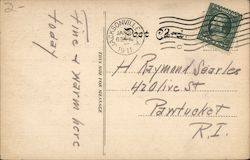 2-
JACKSONVILLE
JAN
1911
Post Card.
THIS SIDE FOR MESSAGE
Fine & warm here
today
H Raymond Searles
42 Olive St
Pawtucket
R.I.